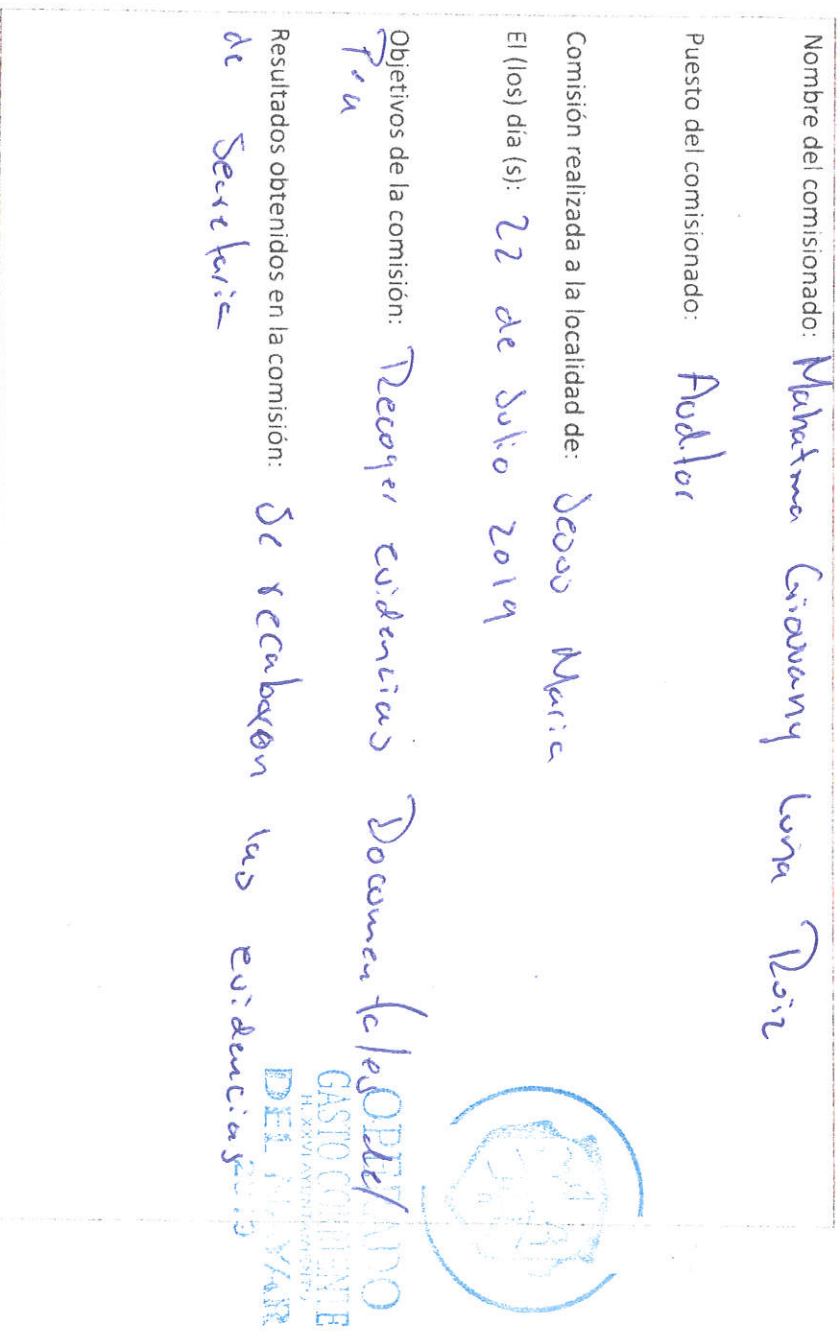 Nombre del comisionado: Mahatma Giovany Luna Ruiz
Puesto del comisionado: Auditor
Comisión realizada a la localidad de: Jesus Maria
El (los) día (s): 22 de Julio 2019
Objetivos de la comisión: Recoger evidencias Documentales del
Resultados obtenidos en la comisión: Se recabaron las evidencias
de Secretaria
OPERADO
GASTO CORRIENTE
H. XXVI AYUNTAMIENTO
DEL NAYAR